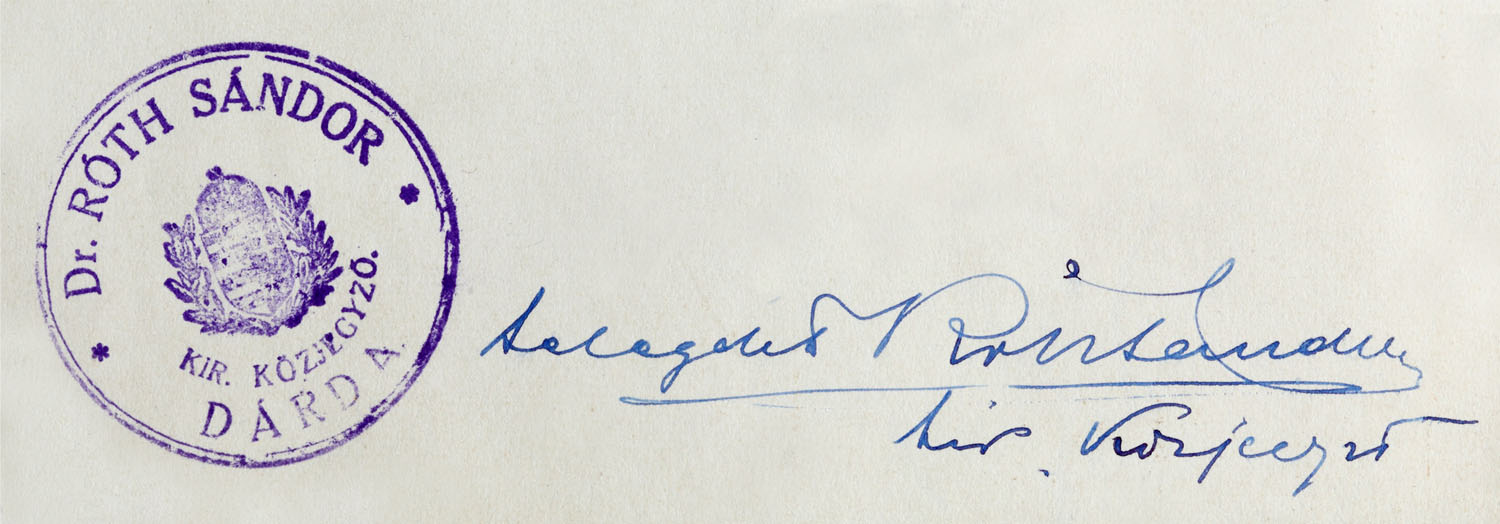 Dr. RÓTH SÁNDOR
KIR. KÖZJEGYZŐ.
DÁRDA.
Róth Sándor
kir. közjegyző